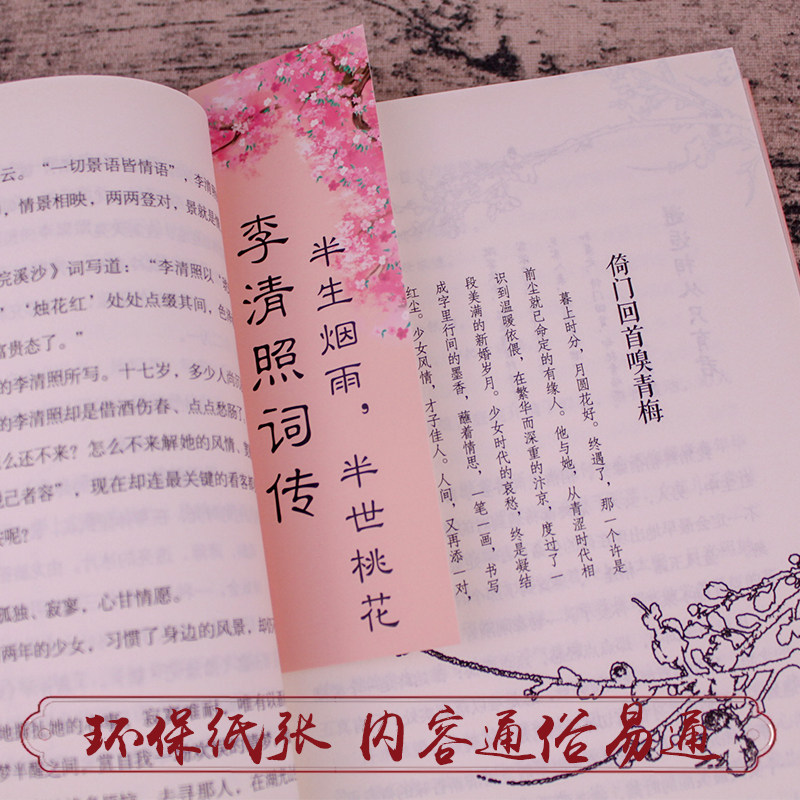 云。“一切景语皆情语”，李清
，情景相映，两两登对，景就是
浣溪沙》词写道：“李清照以‘
’‘烛花红’处处点缀其间，色
富贵态了。”
的李清照所写。十七岁，多少人
的李清照却是借酒伤春、点点愁肠
么还不来？怎么不来解她的风情，
己者容”，现在却连最关键的看客
呢？
孤独、寂寥，心甘情愿。
两年的少女，习惯了身边的风景，
梦半醒之间，
去寻那人，在
半生烟雨，半世桃花
李清照词传
倚门回首嗅青梅
暮上时分，月圆花好。终遇了，那一个许是
前尘就已命定的有缘人。他与她，从青涩时代相
识到温暖依偎，在繁华而深重的汴京，度过了一
段美满的新婚岁月。少女时代的哀愁，终是凝结
成字里行间的墨香，蘸着情思，一笔一画，书写
红尘。少女风情，才子佳人。人间，又再添一对，
环保纸张 内容通俗易通